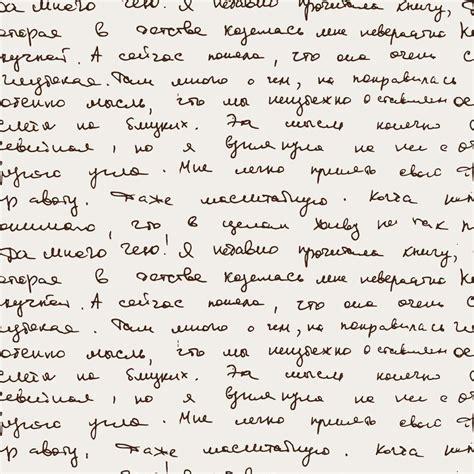 Да много чего! Я недавно прочитала книгу,
оторая в детстве казалась мне невероятно
кучной. А сейчас поняла, что она очень с
глубокая. Там много о чем, но понравилась
мысль, что мы неизбежно оставляем
на близких. Эта мысль конечно
но я взглянула на нее с
угла. Мне легко принять свою
Даже масштабную. Когда
что в целом живу не так п
Да много чего! Я недавно прочитала книгу,
оторая в детстве казалась мне невероятно
кучной. А сейчас поняла, что она очень с
глубокая. Там много о чем, но понравилась
мысль, что мы неизбежно оставляем
на близких. Эта мысль конечно
но я взглянула на нее с
угла. Мне легко принять свою
Даже масштабную. Когда